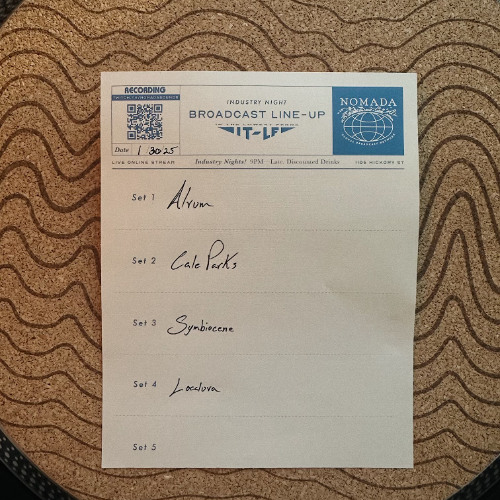 RECORDING
INDUSTRY NIGHT
BROADCAST LINE-UP
IT-LF
NOMADA
Date 1 30 25
LIVE ONLINE STREAM
Industry Nights! 9PM - Late, Discounted Drinks
HICKORY ST
Set 1
Set 2 Cale Parks
Set 3 Symbiocene
Set 4
Set 5